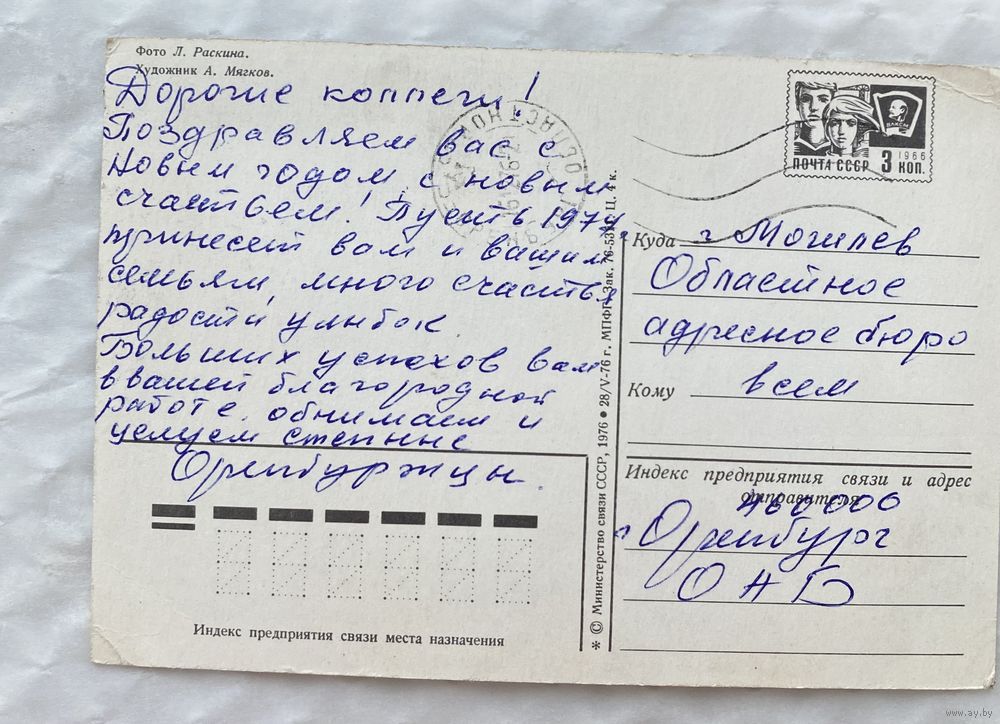 Фото Л. Раскина.
Художник А. Мягков.
Дорогие коллеги!
Поздравляем вас с
Новым годом с новым
счастьем! Пусть 1977г.
принесет вам и вашим
семьям много счастья
радости улыбок.
Больших успехов вам
в вашей благородной
работе. обнимаем и
целуем степные
Оренбуржцы.
Индекс предприятия связи места назначения
* © Министерство связи СССР, 1976 • 28/V-76 г. МПФГ. Зак. 76-531 Ц. 4 к.
ВЛКСМ
1966
ПОЧТА СССР 3 КОП.
Куда г. Могилев
Областное
адресное бюро
Кому всем
Индекс предприятия связи и адрес
отправителя
460000
г Оренбург
ОАБ
www.ay.by